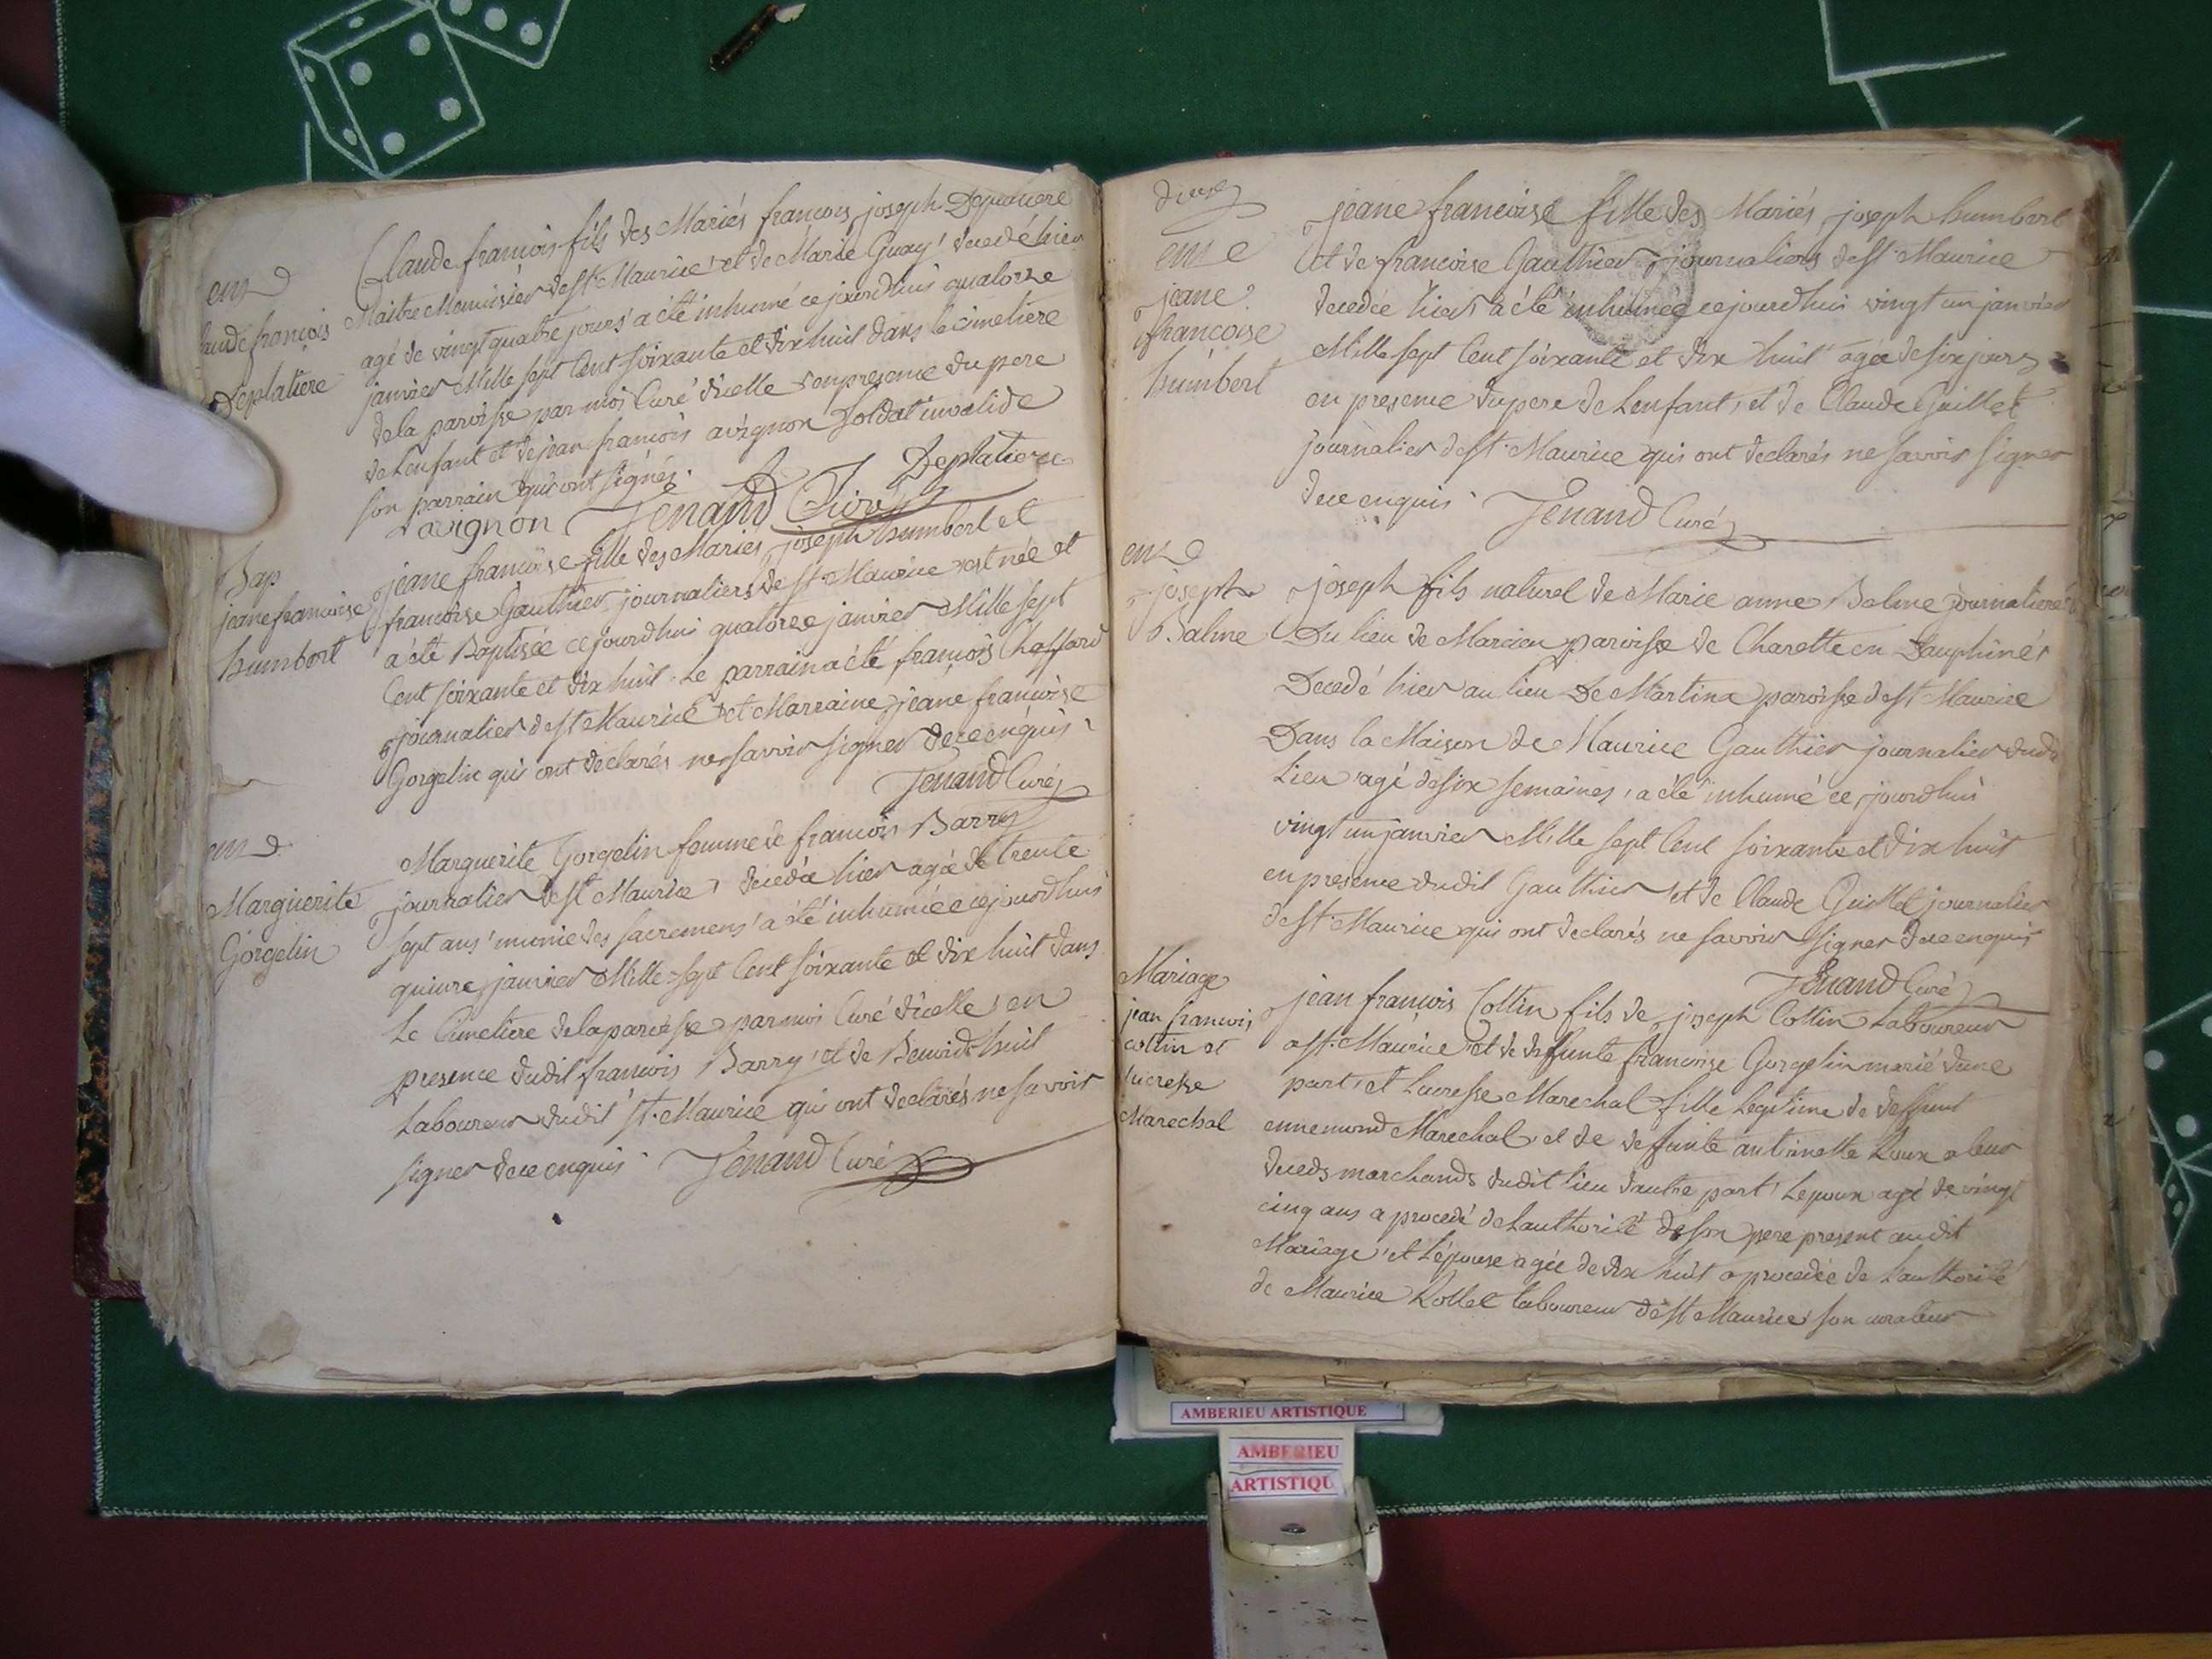 ent
Claude françois
Deplatiere
Claude françois fils des Mariés françois joseph Deplatiere
Maitre Menuisier de st Maurice et de Marie Guay, decedé hier
agé de vingt quatre jours a été inhumé ce jourdhui quatorze
janvier Mille sept Cent soixante et dix huit dans le cimetiere
de la paroisse par moi Curé dicelle en presence du pere
de Lenfant et de jean françois avignon soldat invalide
son parrain qui ont signés.
Deplatiere
avignon Jenand Curé
Bap
jeane francoise
humbert
jeane francoise fille des Mariés joseph humbert et
francoise Gauthier journaliers de st Maurice est née et
a été Baptisée ce jourdhui quatorze janvier Mille sept
Cent soixante et dix huit. Le parrain a été françois Chaffard
journalier de st Maurice et Marraine jeane francoise
Gorgelin qui ont declarés ne savoir signer de ce enquis
Jenand Curé
ent
Marguerite
Gorgelin
Marguerite Gorgelin femme de francois Barry
journalier de st Maurice, decedée hier agée de trente
sept ans munie des sacremens a été inhumée ce jourdhui
quinze janvier Mille sept Cent soixante et dix huit dans
Le Cimetiere de la paroisse par moi Curé dicelle, en
presence dudit francois Barry et de Benoid huit
Laboureur dudit st. Maurice qui ont declarés ne savoir
signer de ce enquis. Jenand Curé
ent
jeane
francoise
humbert
jeane francoise fille des Mariés joseph humbert
et de francoise Gauthier journaliers de st Maurice
decedée hier a été inhumée ce jourdhui vingt un janvier
Mille sept Cent soixante et dix huit agée de six jours
en presence du pere de Lenfant, et de Claude Guillet
journalier de st. Maurice qui ont declarés ne savoir signer
de ce enquis. Jenand Curé
ent
joseph
Balme
joseph fils naturel de Marie anne Balme journaliere
du lieu de Marcieu paroisse de Charette en Dauphiné
Decedé hier au lieu De Martina paroisse de st Maurice
Dans la Maison de Maurice Gauthier journalier dudit
Lieu agé de six semaines, a été inhumé ce jourdhui
vingt un janvier Mille sept Cent soixante et dix huit
en presence dudit Gauthier et de Claude Guillet journalier
de st. Maurice qui ont declarés ne savoir signer de ce enquis
Jenand Curé
Mariage
jean francois
collin et
lucresse
Marechal
jean françois Collin fils de joseph Collin Laboureur
a st. Maurice et de deffunte francoise Gorgelin marié dune
part, et Lucresse Marechal fille Legitime de deffunt
ennemond Marechal et de deffunte antoinette Roux a leur
deceds marchands dudit lieu dautre part, Lepoux agé de vingt
cinq ans a procedé de Lauthorité de son pere present audit
Mariage, et Lépouse agée de dix huit a procedée de Lauthorité
de Maurice Rollet laboureur de st Maurice son curateur
AMBERIEU ARTISTIQUE
AMBERIEU
ARTISTIQU